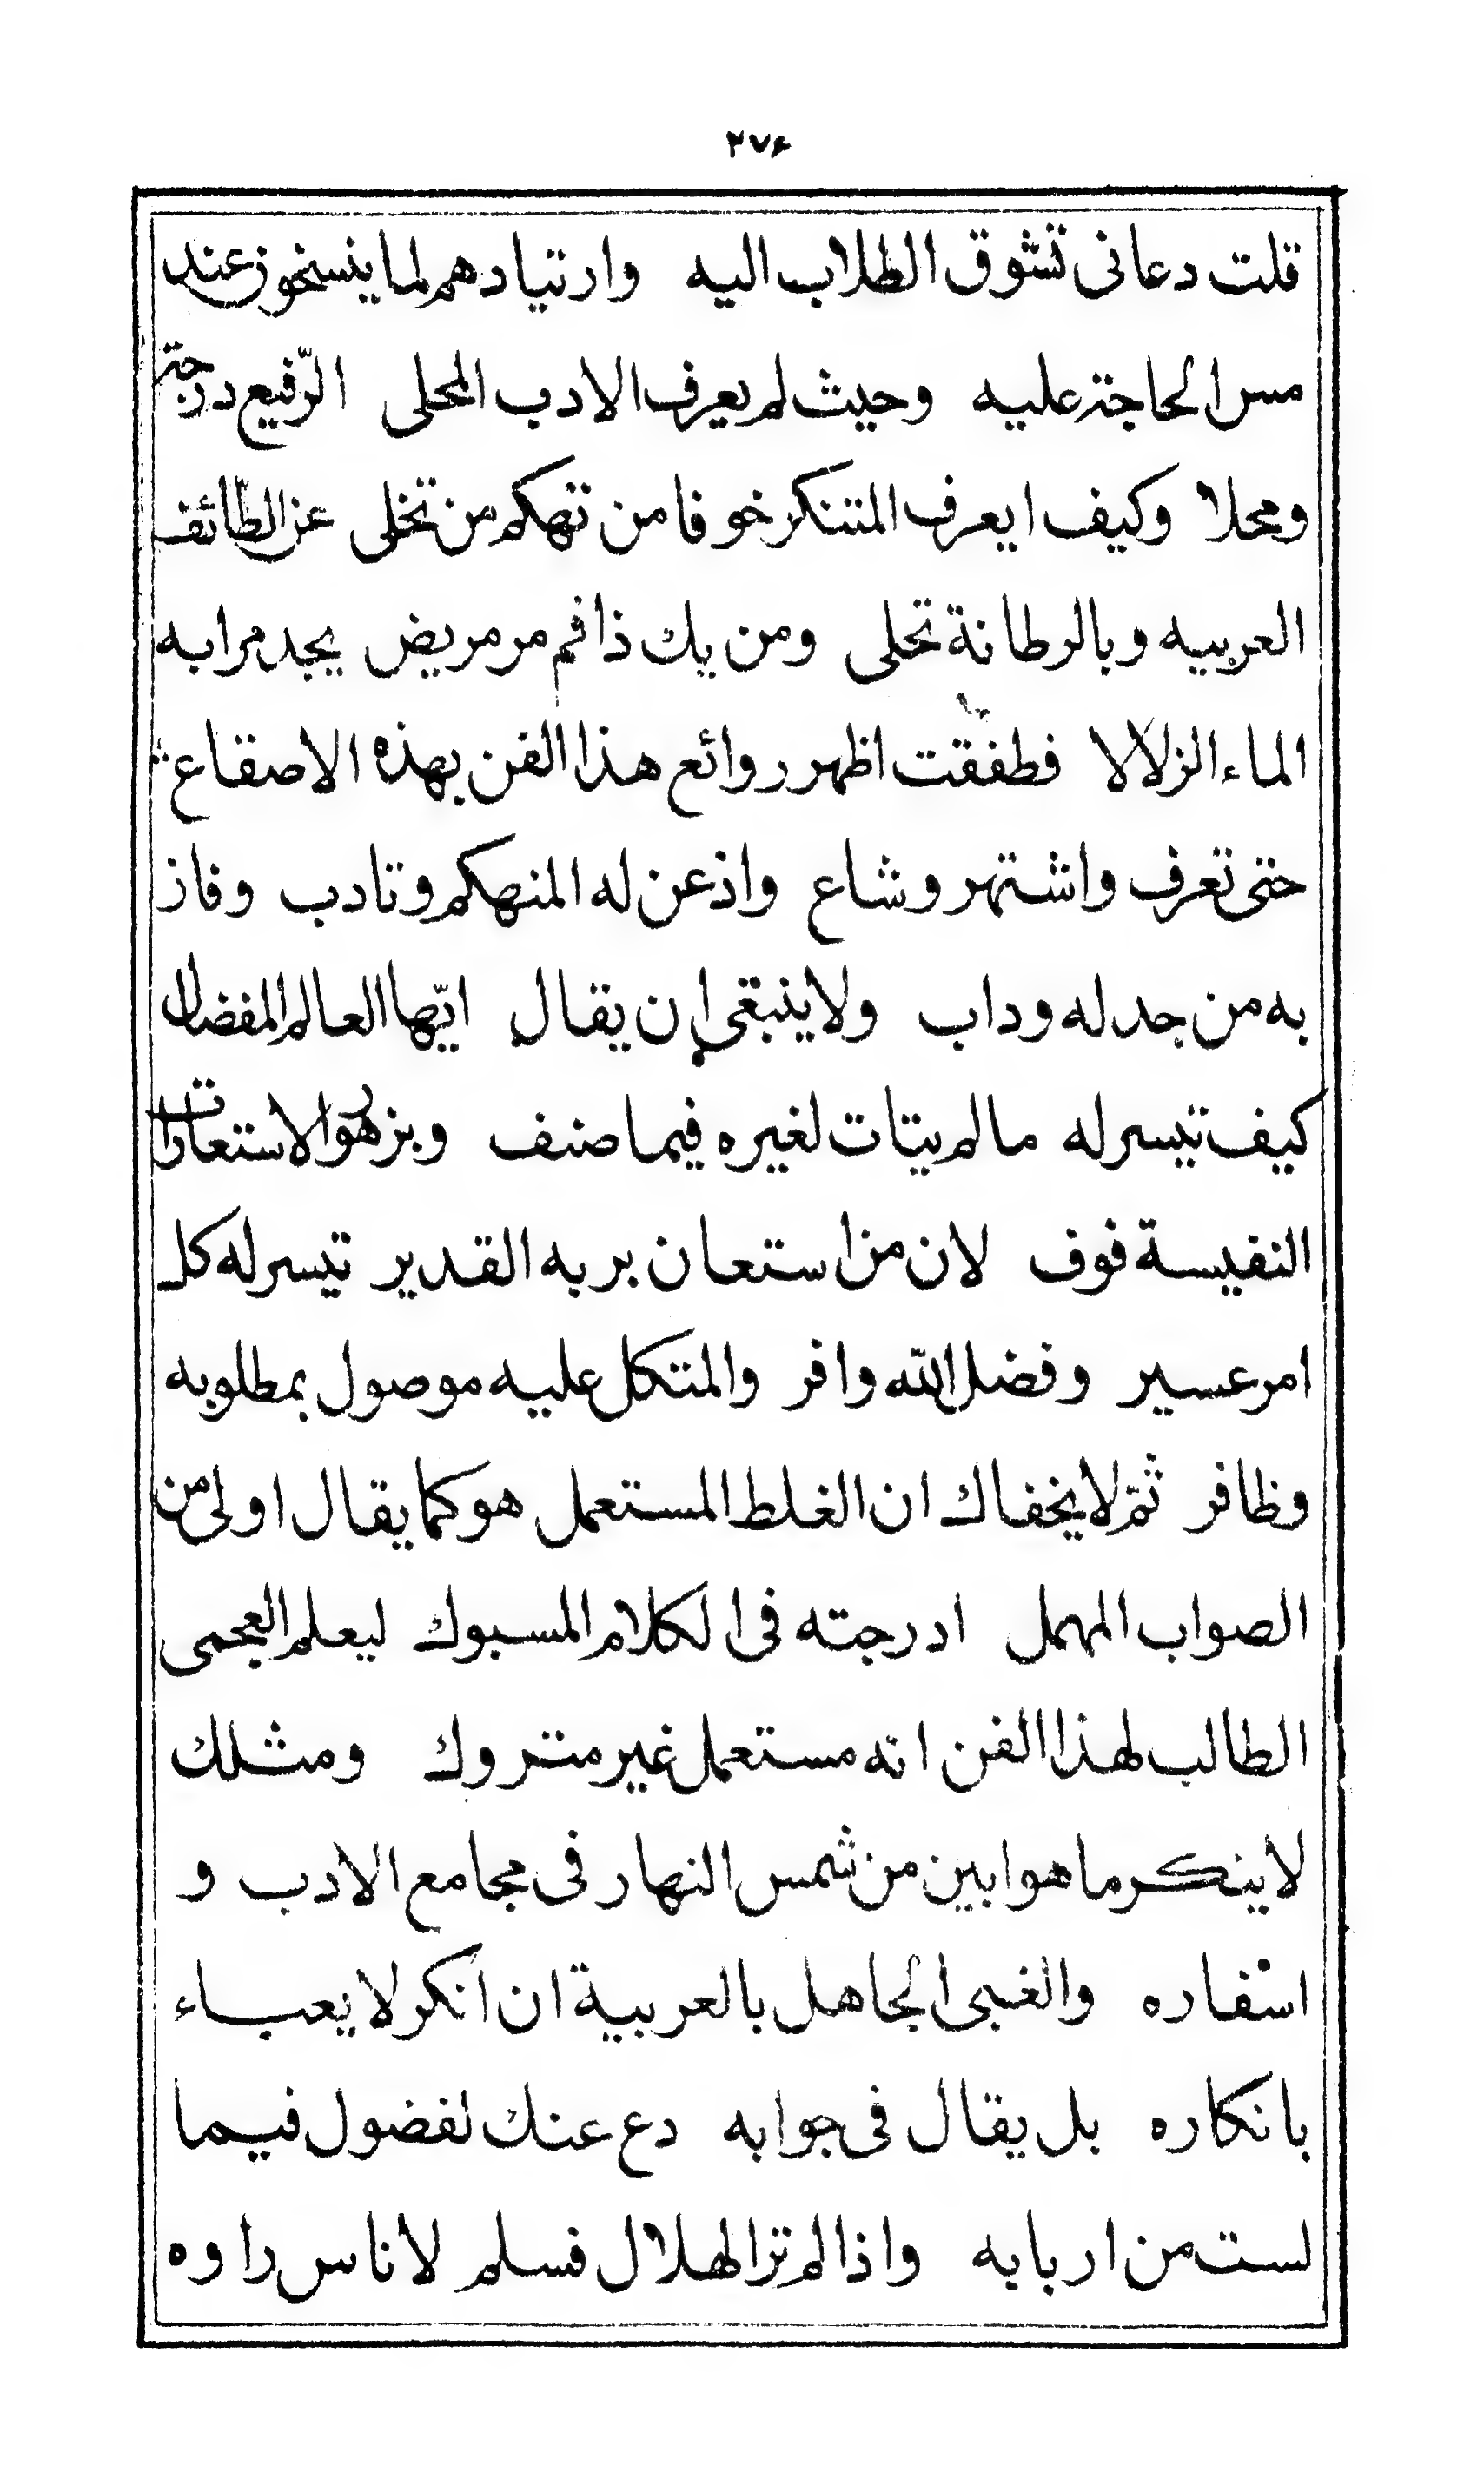 ۲۷۶
قلت دعانى تشوق الطلاب اليه وارتيادهم لما ينسخون عند
مس الحاجة عليه وحيث لم يعرف الادب المحلى الرّفيع درجة
ومحلا وكيف ايعرف المتنكر خوفا من تهكم من تخلى عن الطّائف
العربيه وبالرطانة تحلى ومن يك ذا فم مر مريض يجد مرا به
الماء الزلالا فطفقت اظهر روائع هذا الفن بهذه الاصقاع
حتى تعرف واشتهر وشاع واذعن له المنهكم وتادب وفاز
به من جد له وداب ولا ينبغى ان يقال ايّها العالم المفضال
كيف تيسر له ما لم يتات لغيره فيما صنف وبزهور الاستعارات
النفيسة فوف لان من استعان بربه القدير تيسر له كل
امر عسير وفضل الله وافر والمتكل عليه موصول بمطلوبه
وظافر ثمّ لا يخفاك ان الغلط المستعمل هو كما يقال اولى من
الصواب المهمل ادرجته فى الكلام المسبوك ليعلم العجمى
الطالب لهذا الفن انه مستعمل غير متروك ومثلك
لا ينكر ما هو ابين من شمس النهار فى مجامع الادب و
اسفاره والغبى الجاهل بالعربية ان انكر لا يعباء
بانكاره بل يقال فى جوابه دع عنك لفضول فيما
لست من اربابه واذا لم تر الهلال فسلم لاناس راوه